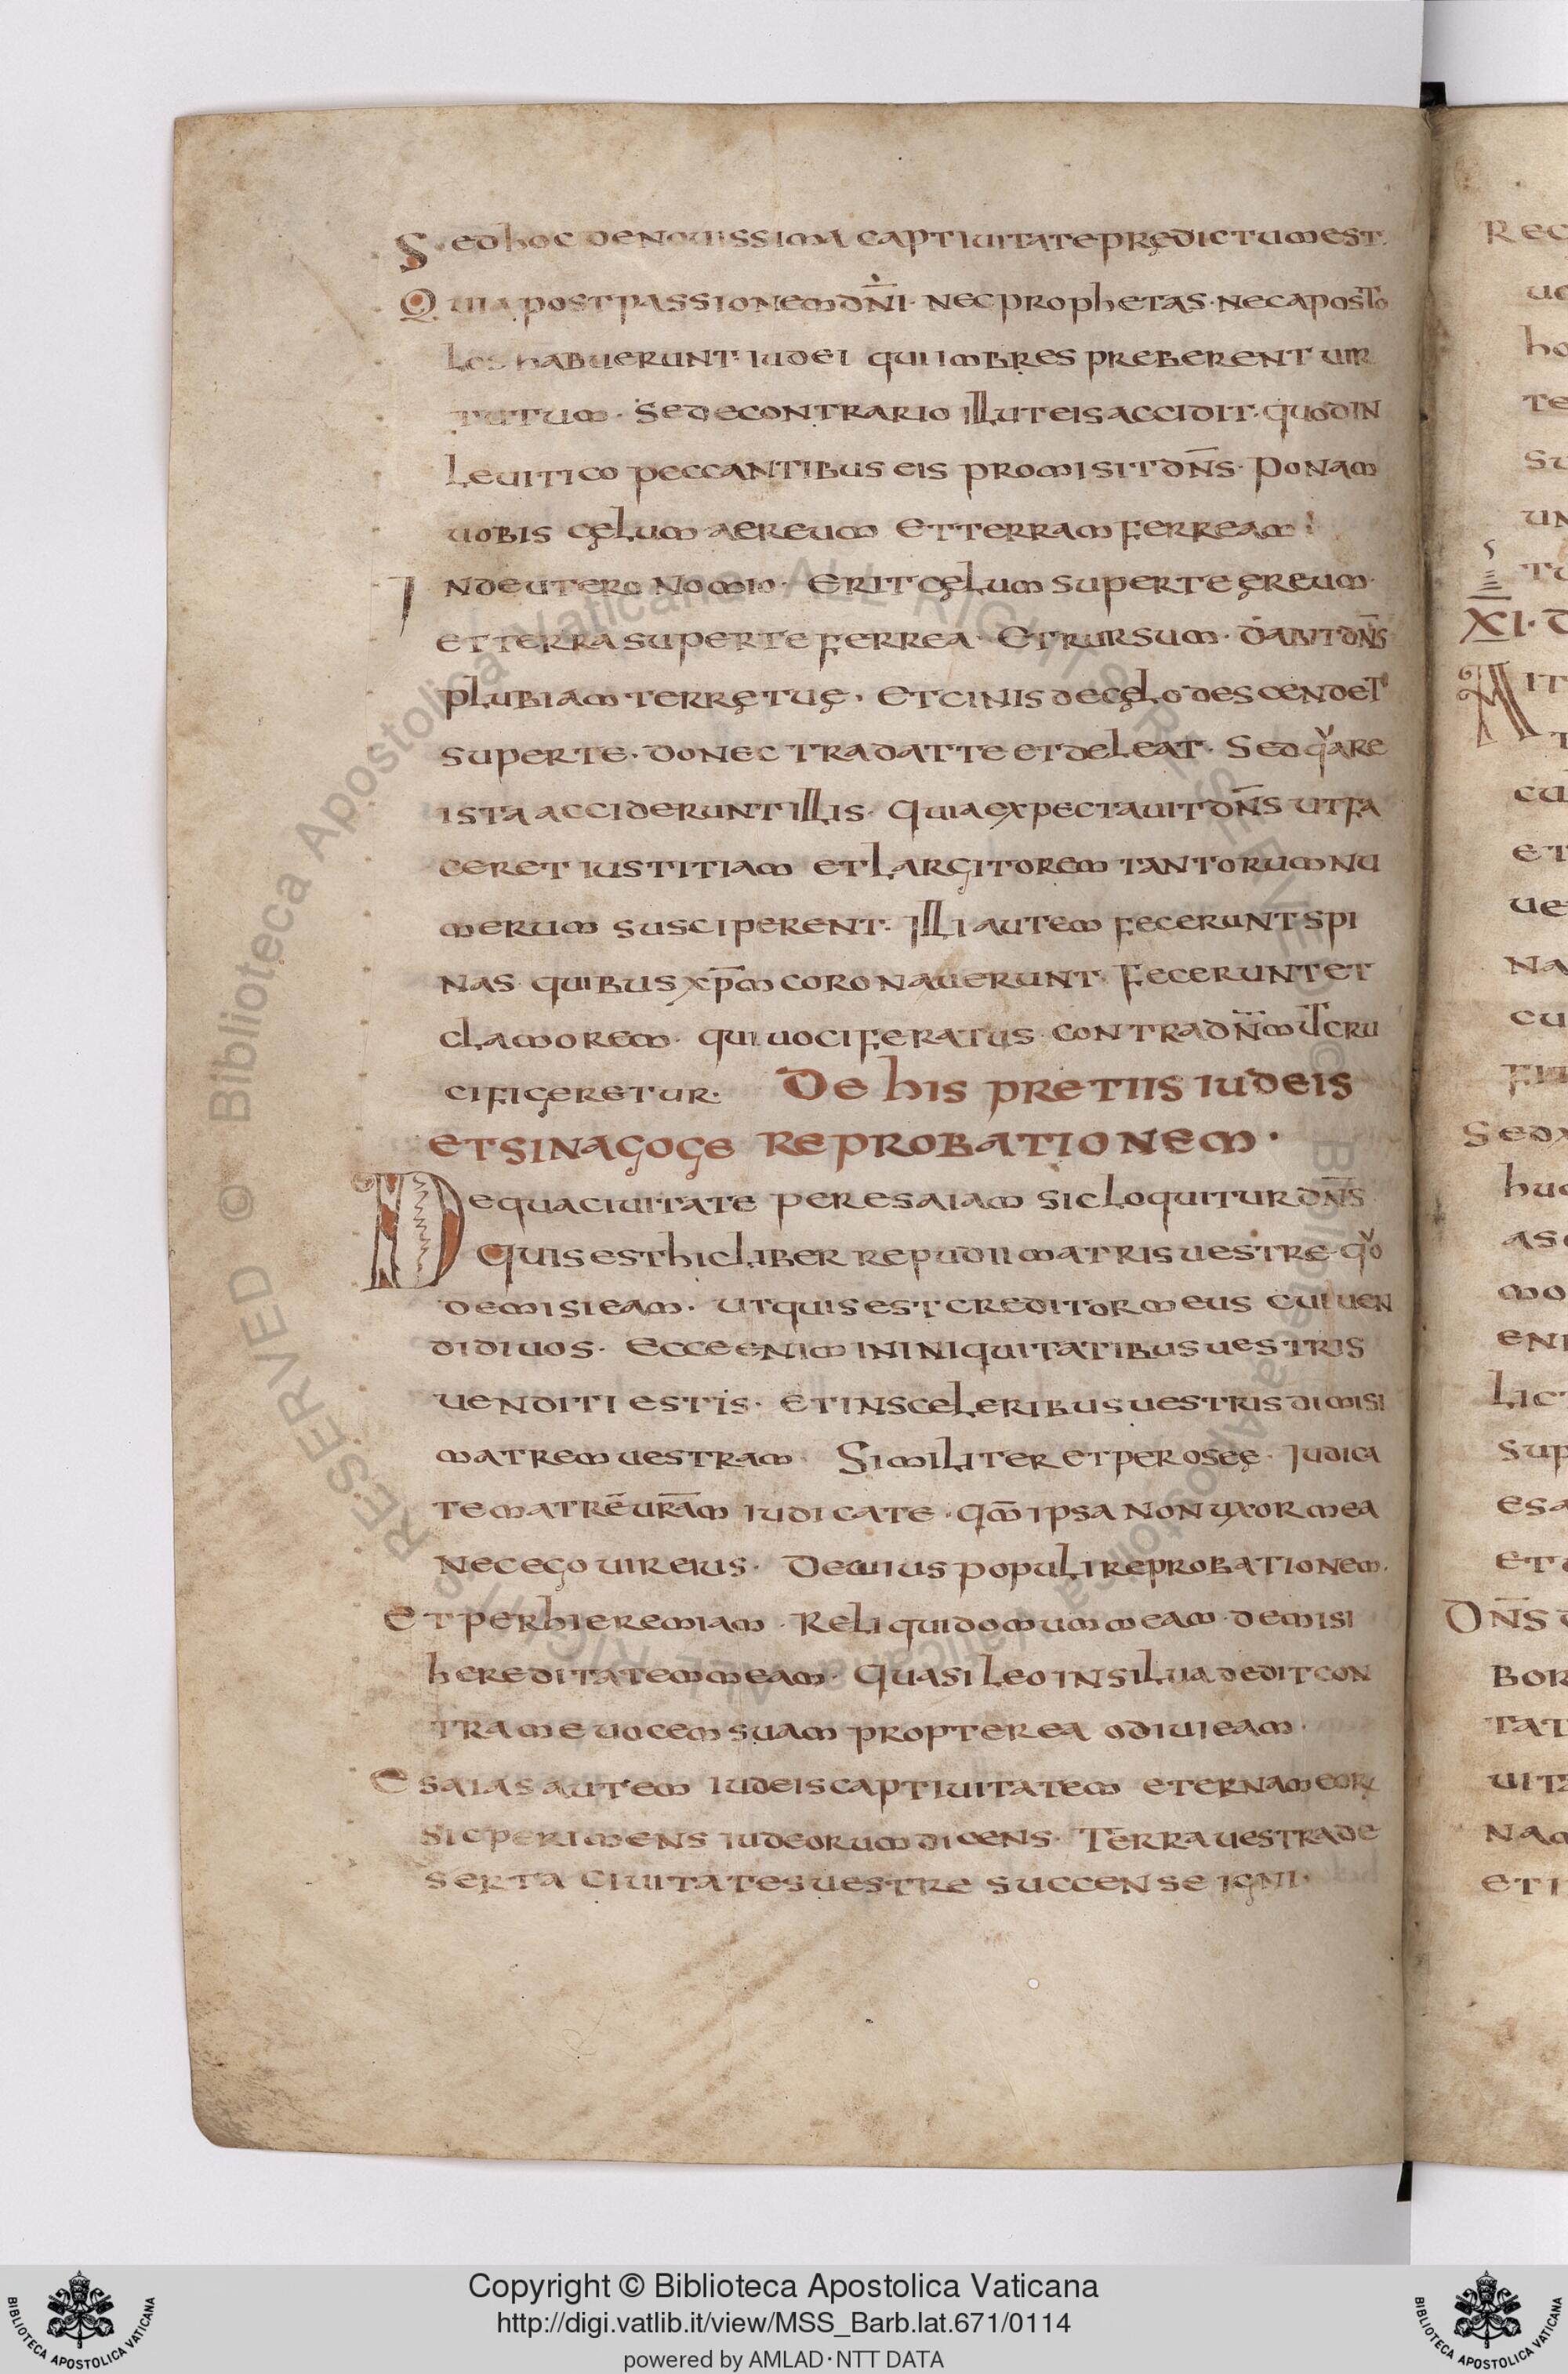 Sed hoc de nouissima captiuitate prędictum est.
Quia post passionem dn̄i· nec prophetas· nec aposto
los habuerunt· iudei qui imbres preberent uir
tutum· Sed econtrario illut eis accidit· quod in
leuitico peccantibus eis promisit dn̄s· Ponam
uobis cęlum aereum et terram ferream·
In deuteronomio· Erit cęlum super te ęreum·
et terra super te ferrea· Et rursum· dabit dn̄s
plubiam terrę tuę· et cinis de cęlo descendet
super te· donec tradat te et deleat· Sed quare
ista acciderunt illis· Quia expectauit dn̄s ut fa
ceret iustitiam et largitorem tantorum nu
merum susciperent· Illi autem fecerunt spi
nas quibus xp̄m coronauerunt· fecerunt et
clamorem· qui uociferatus contra dn̄m ut cru
cifigeretur· De his pretiis iudeis
et sinagoge reprobationem·
De qua ciuitate per esaiam sic loquitur dn̄s
Quis est hic liber repudii matris uestre· quo
demisi eam· ut quis est creditor meus cui uen
didi uos· Ecce enim in iniquitatibus uestris
uenditi estis· et in sceleribus uestris dimisi
matrem uestram· Similiter et per oseę· Iudica
te matrē ur̄am iudicate· qm̄ ipsa non uxor mea
nec ego uir eius· De uius populi reprobationem·
Et per hieremiam· Reliqui domum meam· demisi
hereditatem meam· Quasi leo in silua dedit con
tra me uocem suam propterea odiui eam·
Esaias autem iudeis captiuitatem eternam eoru
sic perimens iudeorum dicens· Terra uestra de
serta ciuitates uestre succense igni·
XI·
Copyright © Biblioteca Apostolica Vaticana
http://digi.vatlib.it/view/MSS_Barb.lat.671/0114
powered by AMLAD·NTT DATA
BIBLIOTECA APOSTOLICA VATICANA
BIBLIOTECA APOSTOLICA VATICANA